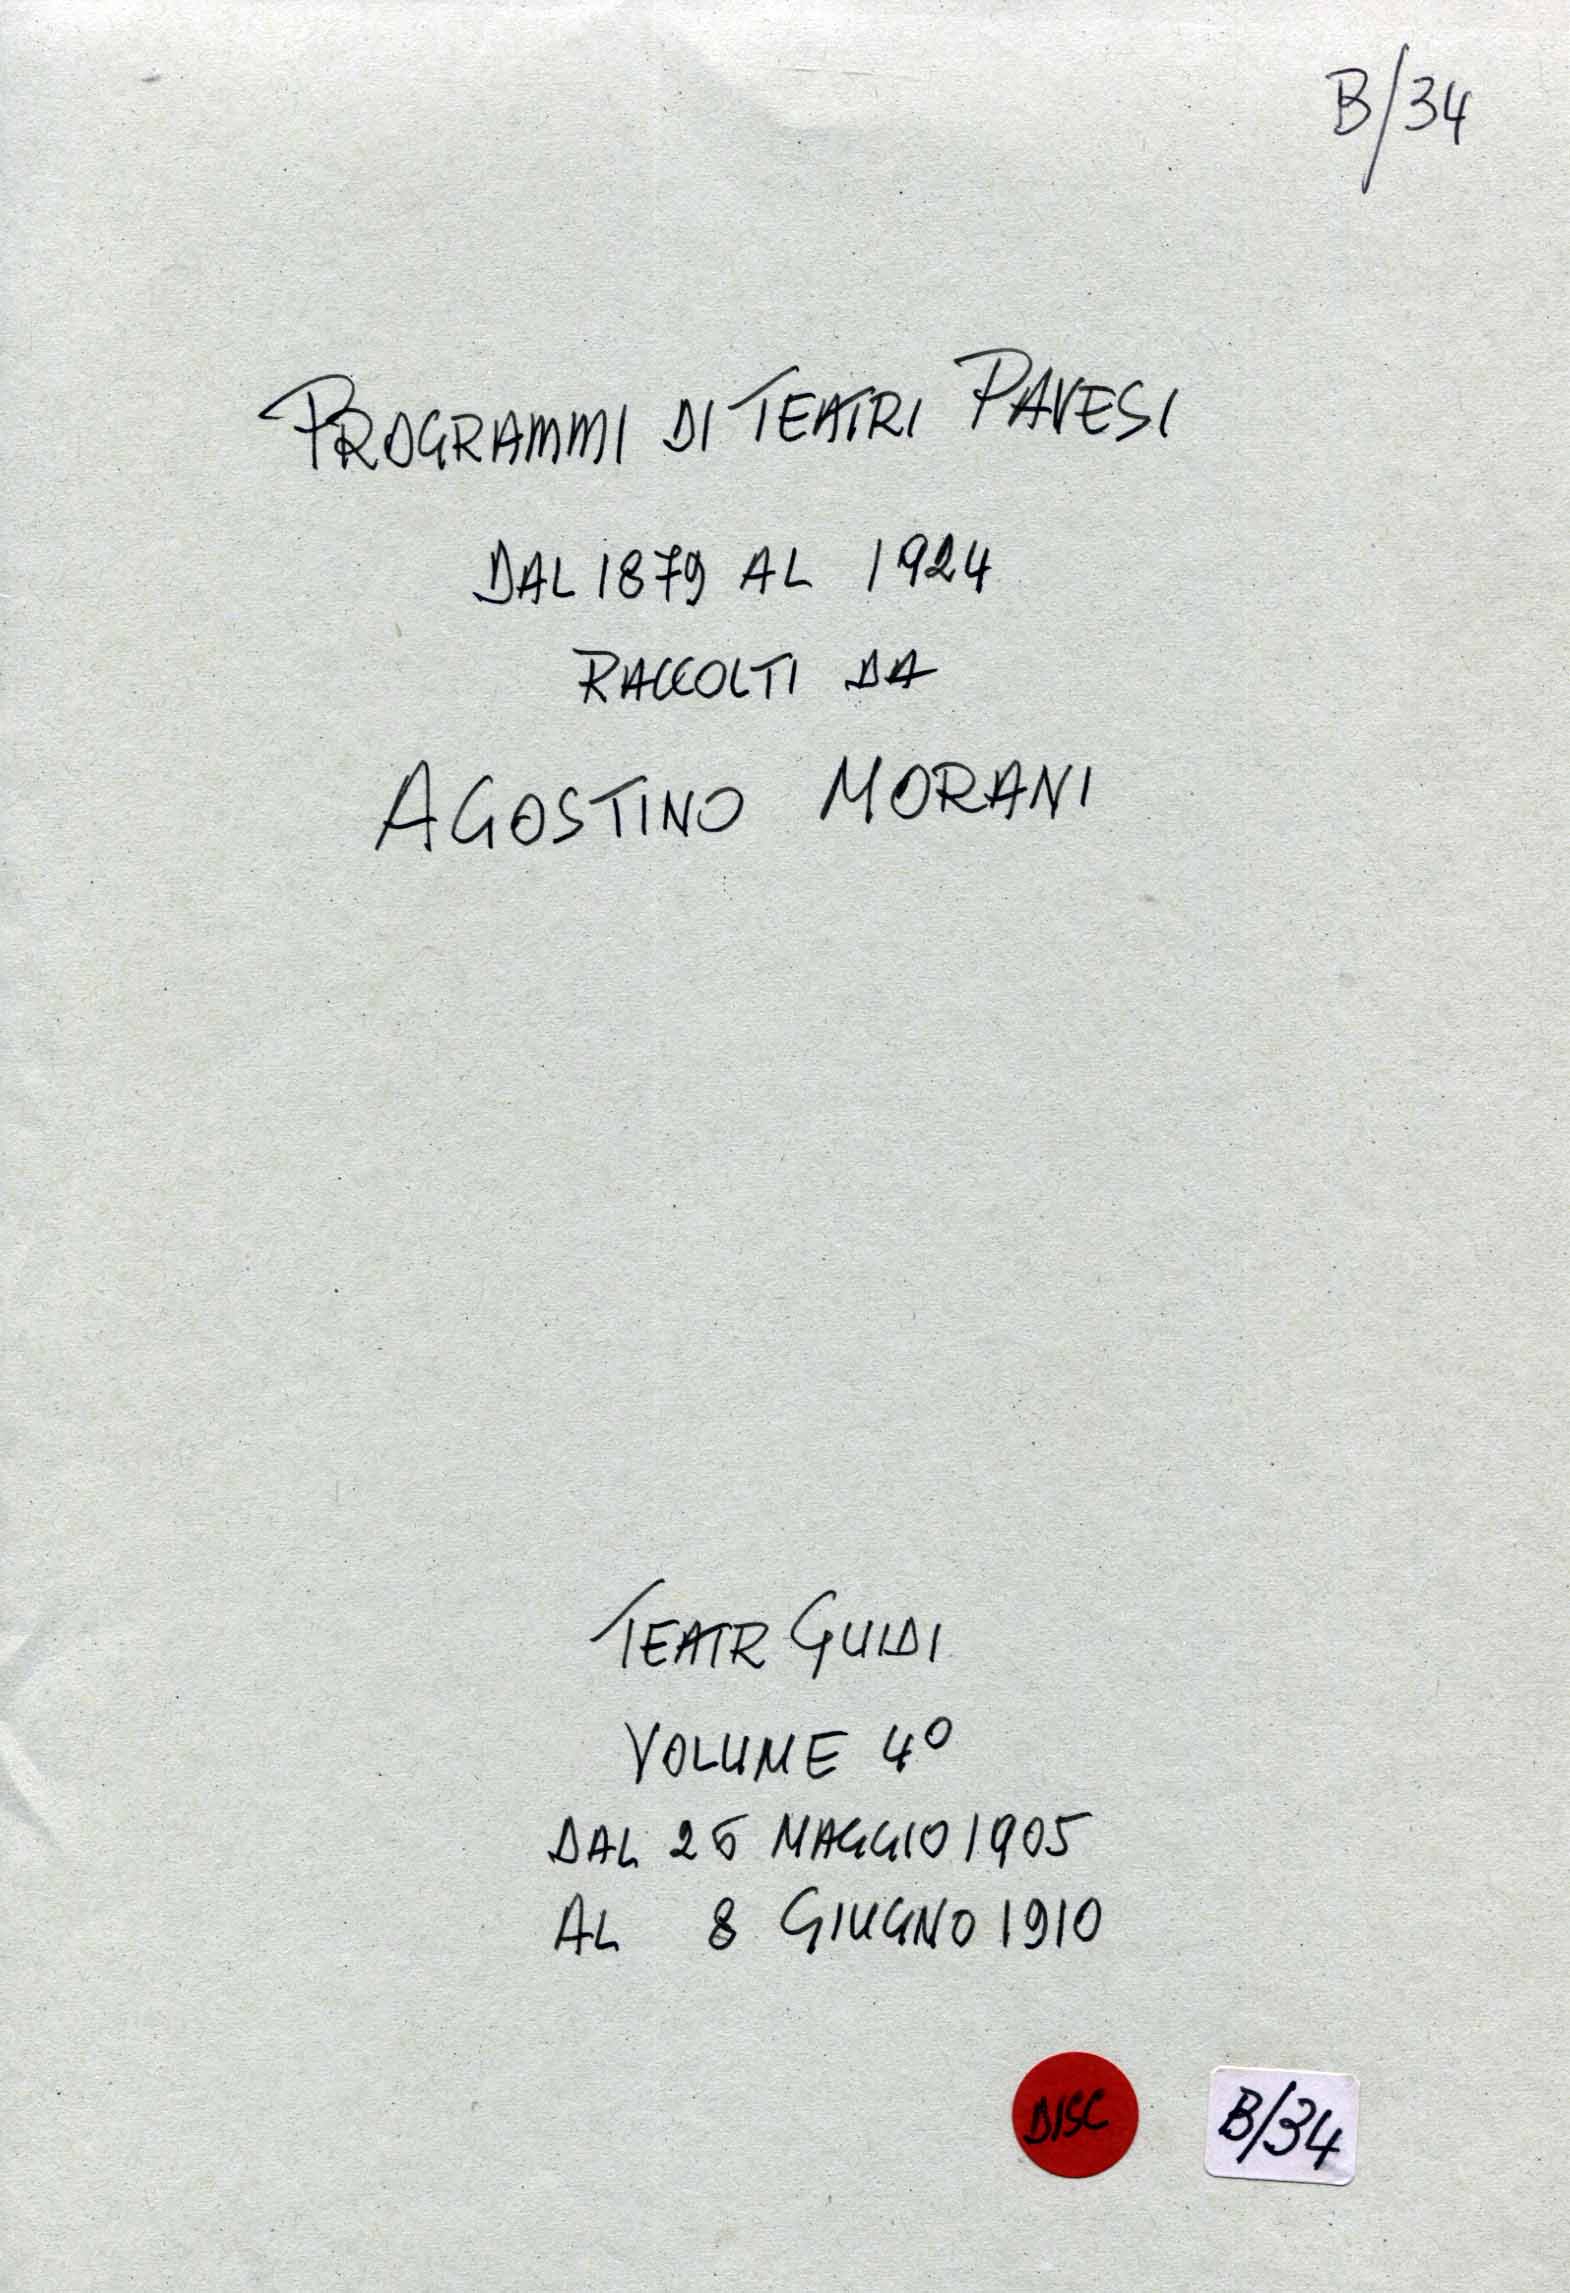 B/34
PROGRAMMI DI TEATRI PAVESI
DAL 1879 AL 1924
RACCOLTI DA
AGOSTINO MORANI
TEATR GUIDI
VOLUME 4º
DAL 26 MAGGIO 1905
AL 8 GIUGNO 1910
DISC
B/34